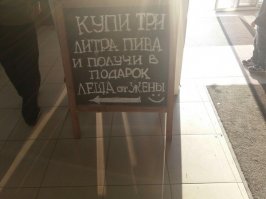 КУПИ ТРИ
ЛИТРА ПИВА
И ПОЛУЧИ В
ПОДАРОК
ЛЕЩА от ЖЕНЫ